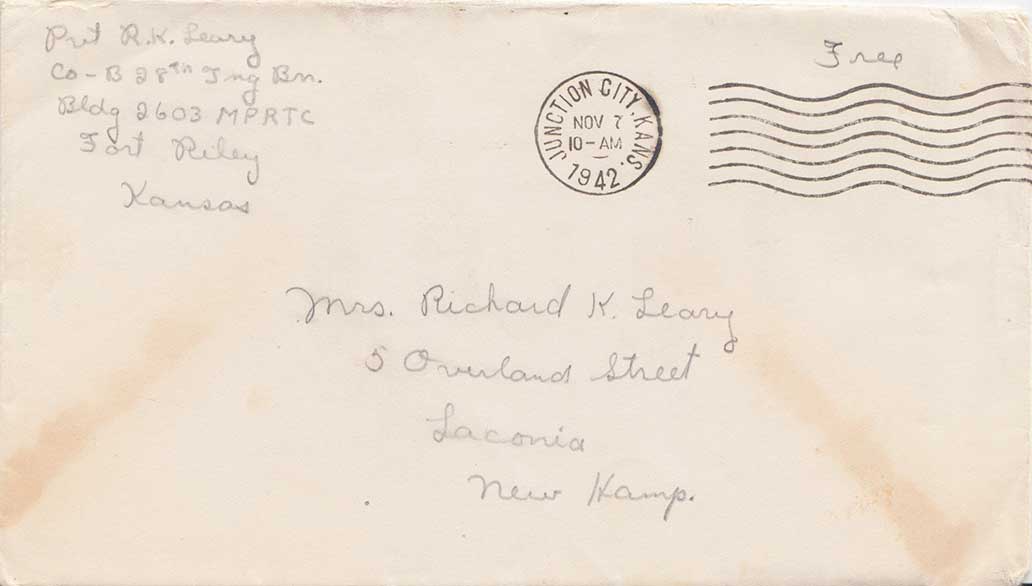 Pvt R.K. Leary
Co-B 28th Tng Bn.
Bldg 2603 MPRTC
Fort Riley
Kansas
Free
JUNCTION CITY, KANS.
NOV 7
10-AM
1942
Mrs. Richard K. Leary
5 Overland Street
Laconia
New Hamp.